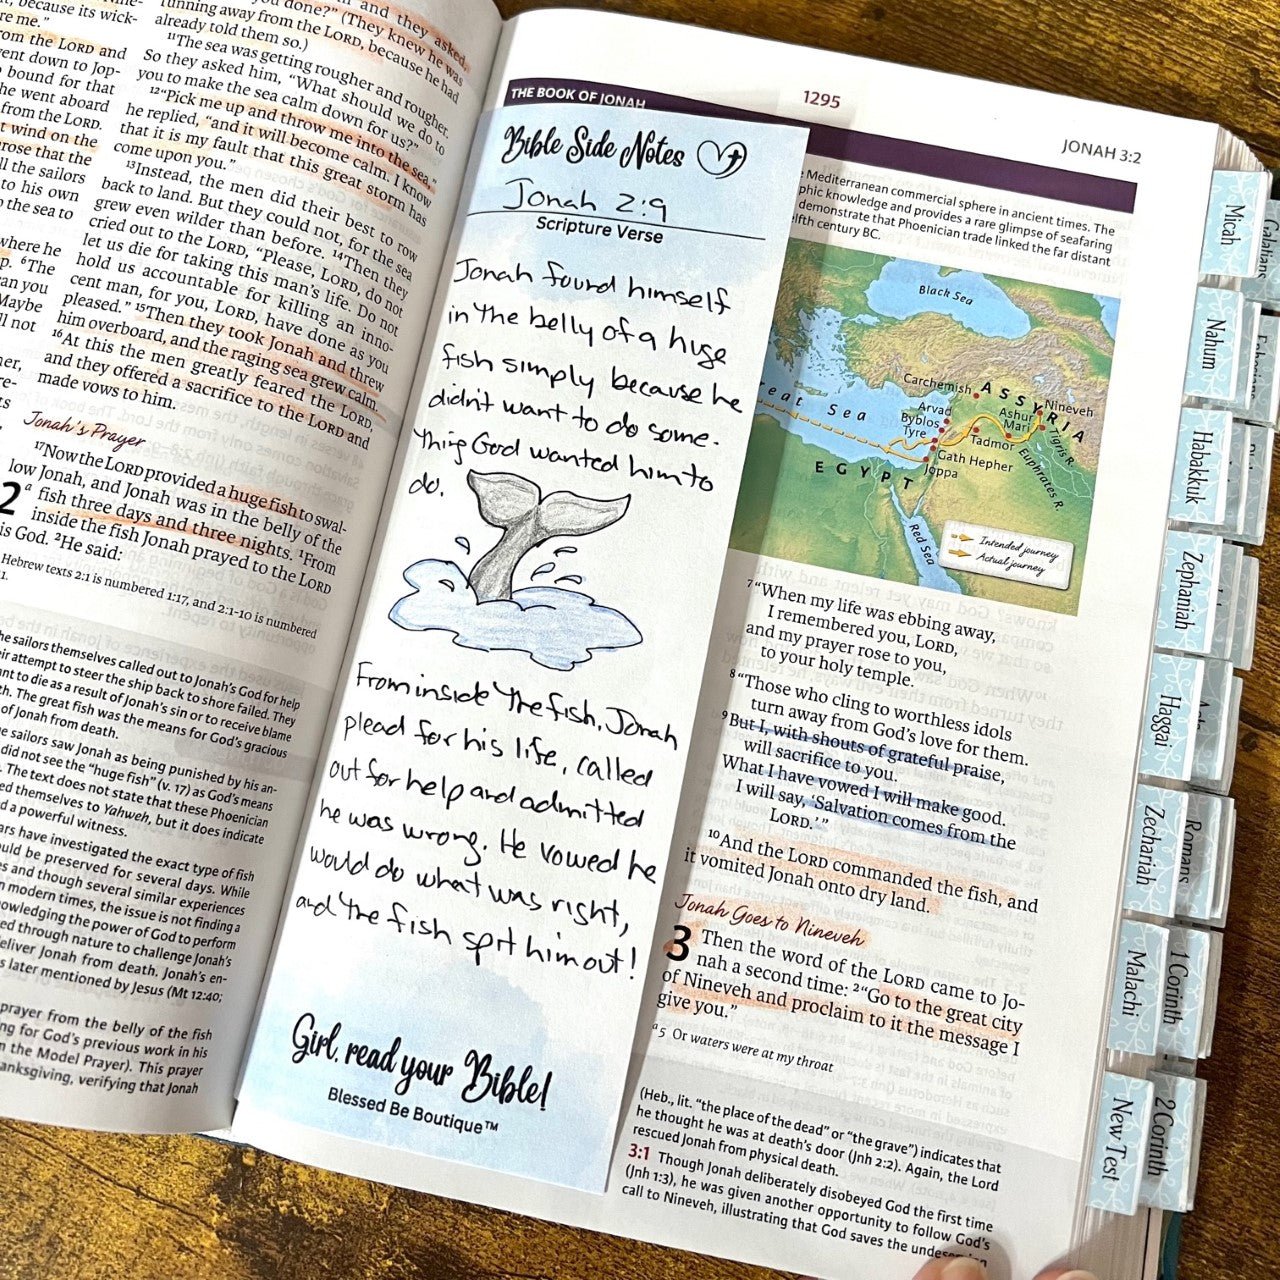 , because its wick-
re me."
rom the LORD and
ent down to Jop-
bound for that
he went aboard
from the LORD.
t wind on the
rose that the
ll the sailors
to his own
the sea to
where he
p. ⁶The
an you
Maybe
ll not
you done?" (They knew he was
running away from the LORD, because he had
already told them so.)
¹¹The sea was getting rougher and rougher.
So they asked him, "What should we do to
you to make the sea calm down for us?"
¹²"Pick me up and throw me into the sea,"
he replied, "and it will become calm. I know
that it is my fault that this great storm has
come upon you."
¹³Instead, the men did their best to row
back to land. But they could not, for the sea
grew even wilder than before. ¹⁴Then they
cried out to the LORD, "Please, LORD, do not
let us die for taking this man's life. Do not
hold us accountable for killing an inno-
cent man, for you, LORD, have done as you
pleased." ¹⁵Then they took Jonah and threw
him overboard, and the raging sea grew calm.
¹⁶At this the men greatly feared the LORD,
and they offered a sacrifice to the LORD and
made vows to him.
Jonah's Prayer
¹⁷Now the LORD provided a huge fish to swal-
low Jonah, and Jonah was in the belly of the
fish three days and three nights. ¹From
2
a
inside the fish Jonah prayed to the LORD
is God. ²He said:
Hebrew texts 2:1 is numbered 1:17, and 2:1-10 is numbered
he sailors themselves called out to Jonah's God for help
eir attempt to steer the ship back to shore failed. They
ant to die as a result of Jonah's sin or to receive blame
th. The great fish was the means for God's gracious
of Jonah from death.
e sailors saw Jonah as being punished by his an-
did not see the "huge fish" (v. 17) as God's means
. The text does not state that these Phoenician
ed themselves to Yahweh, but it does indicate
d a powerful witness.
ars have investigated the exact type of fish
ould be preserved for several days. While
es and though several similar experiences
n modern times, the issue is not finding a
owledging the power of God to perform
ed through nature to challenge Jonah's
eliver Jonah from death. Jonah's en-
s later mentioned by Jesus (Mt 12:40;
prayer from the belly of the fish
ng for God's previous work in his
n the Model Prayer). This prayer
anksgiving, verifying that Jonah
Bible Side Notes
Jonah 2:9
Scripture Verse
Jonah found himself
in the belly of a huge
fish simply because he
didn't want to do some-
thing God wanted him to
do.
From inside the fish, Jonah
plead for his life, called
out for help and admitted
he was wrong. He vowed he
would do what was right,
and the fish spit him out!
Girl, read your Bible!
Blessed Be Boutique™
THE BOOK OF JONAH
1295
JONAH 3:2
e Mediterranean commercial sphere in ancient times. The
phic knowledge and provides a rare glimpse of seafaring
demonstrate that Phoenician trade linked the far distant
lfth century BC.
Black Sea
Carchemish
ASSYRIA
Nineveh
Ashur
Mari
Arvad
Byblos
Tyre
Tadmor
Gath Hepher
Joppa
reat Sea
EGYPT
Tigris R.
Euphrates R.
Red Sea
Intended journey
Actual journey
⁷"When my life was ebbing away,
I remembered you, LORD,
and my prayer rose to you,
to your holy temple.
⁸"Those who cling to worthless idols
turn away from God's love for them.
⁹But I, with shouts of grateful praise,
will sacrifice to you.
What I have vowed I will make good.
I will say, 'Salvation comes from the
LORD.'"
¹⁰And the LORD commanded the fish, and
it vomited Jonah onto dry land.
Jonah Goes to Nineveh
3
Then the word of the LORD came to Jo-
nah a second time: ²"Go to the great city
of Nineveh and proclaim to it the message I
give you."
a 5 Or waters were at my throat
(Heb., lit. "the place of the dead" or "the grave") indicates that
he thought he was at death's door (Jnh 2:2). Again, the Lord
rescued Jonah from physical death.
3:1 Though Jonah deliberately disobeyed God the first time
(Jnh 1:3), he was given another opportunity to follow God's
call to Nineveh, illustrating that God saves the
Micah
Nahum
Habakkuk
Zephaniah
Haggai
Zechariah
Malachi
New Test
Galatians
Romans
1 Corinth
2 Corinth